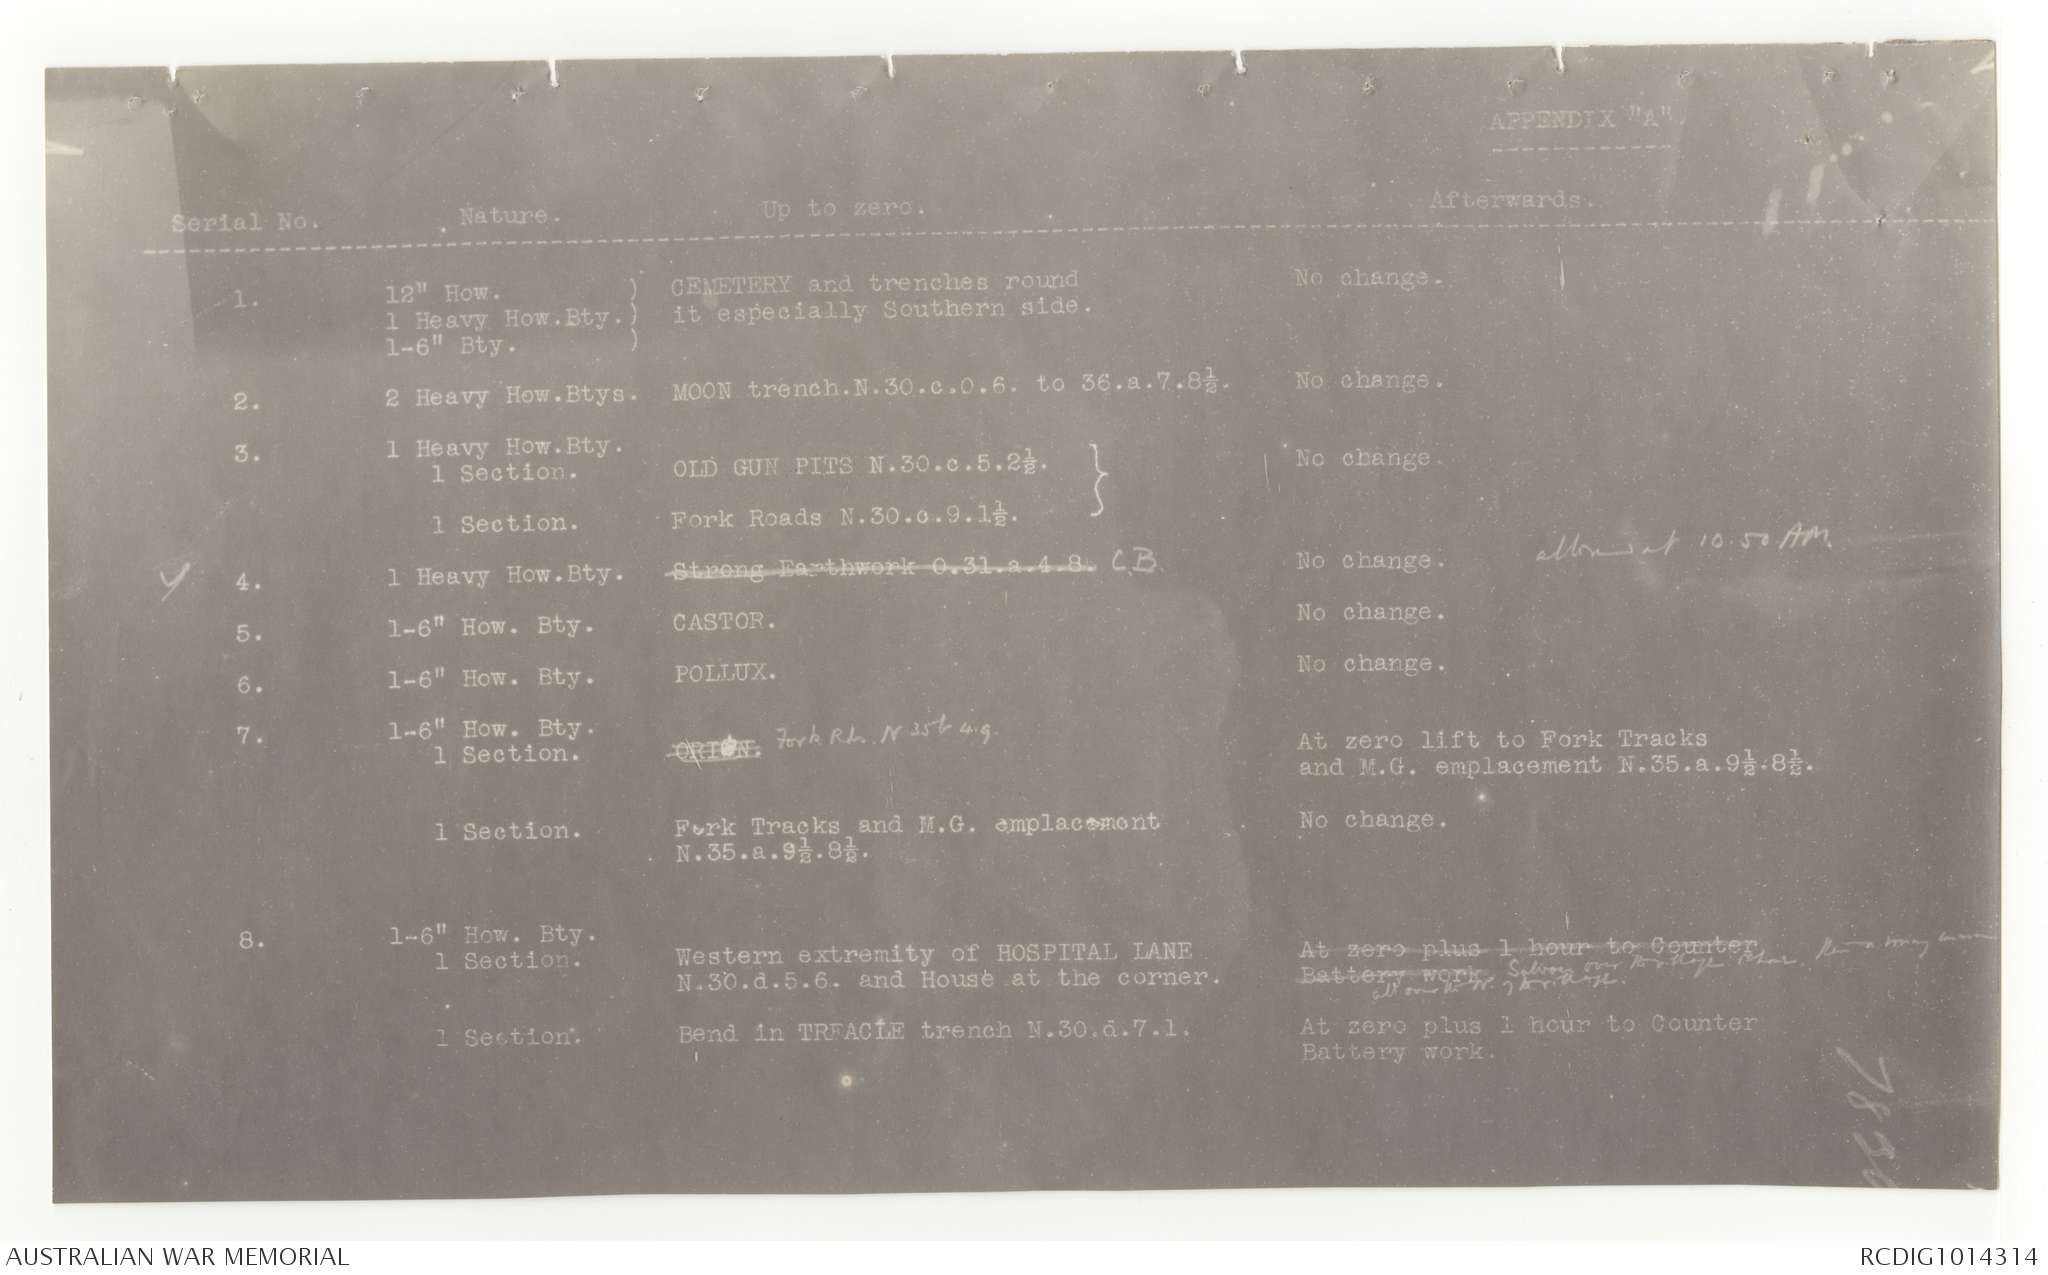 APPENDIX "A".
Serial No. Nature. Up to zero. Afterwards.
1. 12" How. ) CEMETERY and trenches round No change.
1 Heavy How.Bty.) it especially Southern side.
1-6" Bty. )
2. 2 Heavy How.Btys. MOON trench.N.30.c.0.6. to 36.a.7.8½. No change.
3. 1 Heavy How.Bty.
1 Section. OLD GUN PITS N.30.c.5.2½. } No change.
1 Section. Fork Roads N.30.c.9.1½.
4. 1 Heavy How.Bty. Strong Earthwork O.31.a.4 8. C.B. No change. at 10.50 AM.
5. 1-6" How. Bty. CASTOR. No change.
6. 1-6" How. Bty. POLLUX. No change.
7. 1-6" How. Bty.
1 Section. ORION. Fork Rds. N 35 b 4.9. At zero lift to Fork Tracks
and M.G. emplacement N.35.a.9½.8½.
1 Section. Fork Tracks and M.G. emplacement No change.
N.35.a.9½.8½.
8. 1-6" How. Bty.
1 Section. Western extremity of HOSPITAL LANE At zero plus 1 hour to Counter
N.30.d.5.6. and House at the corner. Battery work. over
1 Section. Bend in TREACLE trench N.30.d.7.1. At zero plus 1 hour to Counter
Battery work.
AUSTRALIAN WAR MEMORIAL RCDIG1014314